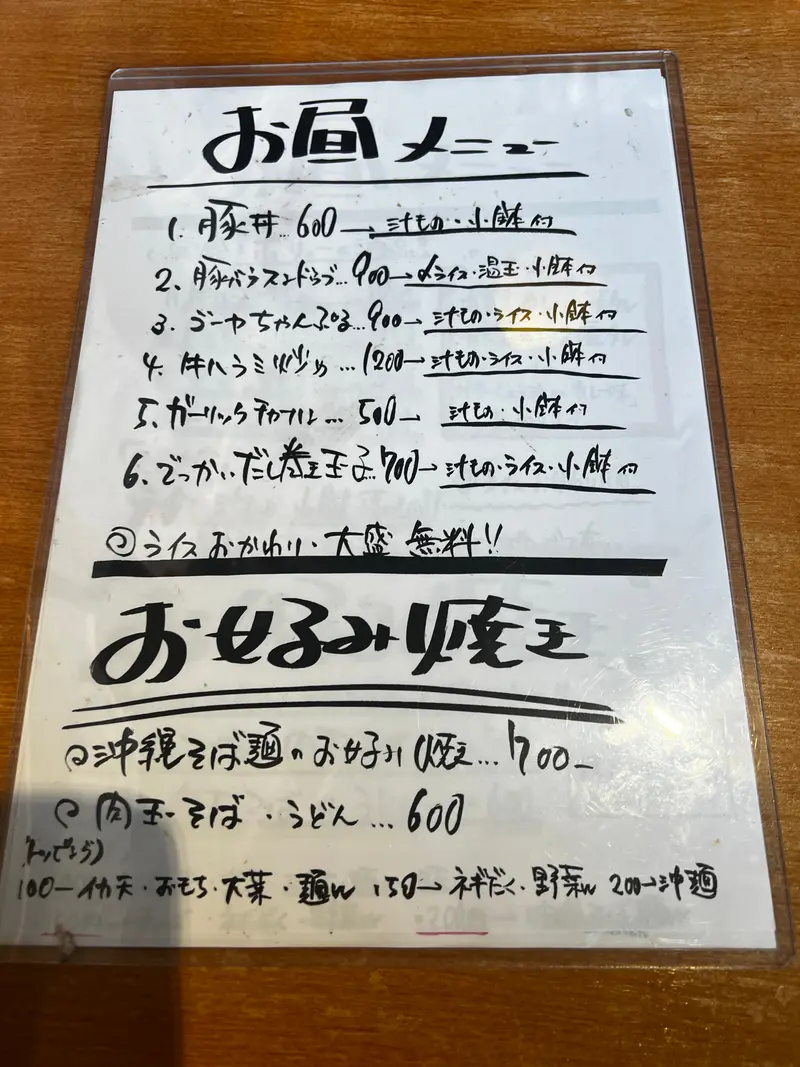 お昼メニュー
1. 豚丼… 600→汁もの・小鉢付
2. 豚バラスンドゥブ… 900→〆ライス・温玉・小鉢付
3. ゴーヤちゃんぷる… 900→汁もの・ライス・小鉢付
4. 牛ハラミ炒め… 1200→汁もの・ライス・小鉢付
5. ガーリックチャーハン… 500→汁もの・小鉢付
6. でっかいだし巻玉子… 700→汁もの・ライス・小鉢付
◎ライスおかわり・大盛 無料!!
お好み焼き
◎沖縄そば麺のお好み焼き… 700-
◎肉玉-そば・うどん… 600
100-イカ天・おもち・大葉・麺W 150→ネギだく・野菜W 200→沖麺